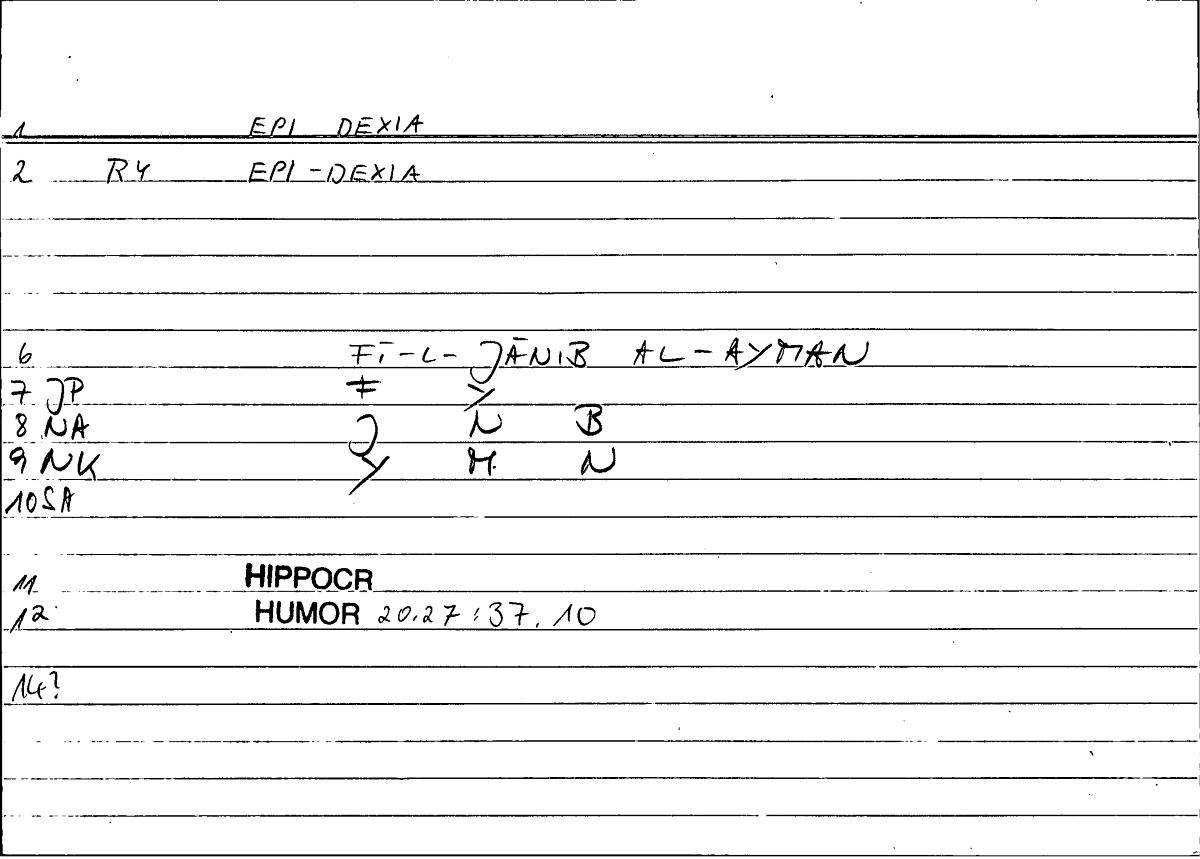 1 EPI DEXIA
2 RY EPI-DEXIA
6 FĪ-L-JĀNIB AL-AYMAN
7 JP F Y
8 NA J N B
9 NK Y M N
10 SA
11 HIPPOCR
12 HUMOR 20.27:37.10
14?